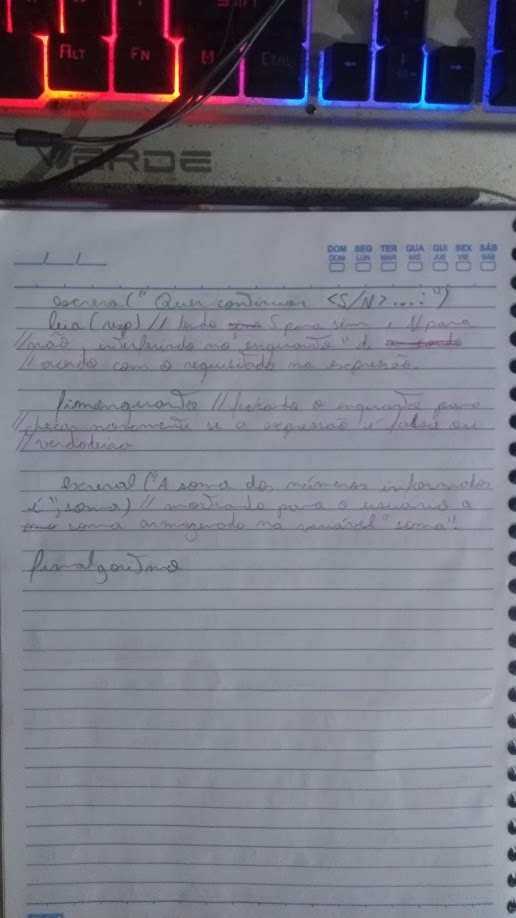 ALT FN CTRL
ERDE
DOM SEG TER QUA QUI SEX SÁB
DOM LUN MAR MIE JUE VIE SÁB
escreva("Quer continuar <S/N>...:")
leia(resp) // lendo S para sim e N para
// não, interferindo no "enquanto" de
// acordo com o requisitado na expressão.
fimenquanto // fechando o enquanto para
// checar novamente se a expressão é falsa ou
// verdadeira
escreval("A soma dos números informados
é", soma) // mostrando para o usuário a
soma armazenada na variável "soma".
fimalgoritmo